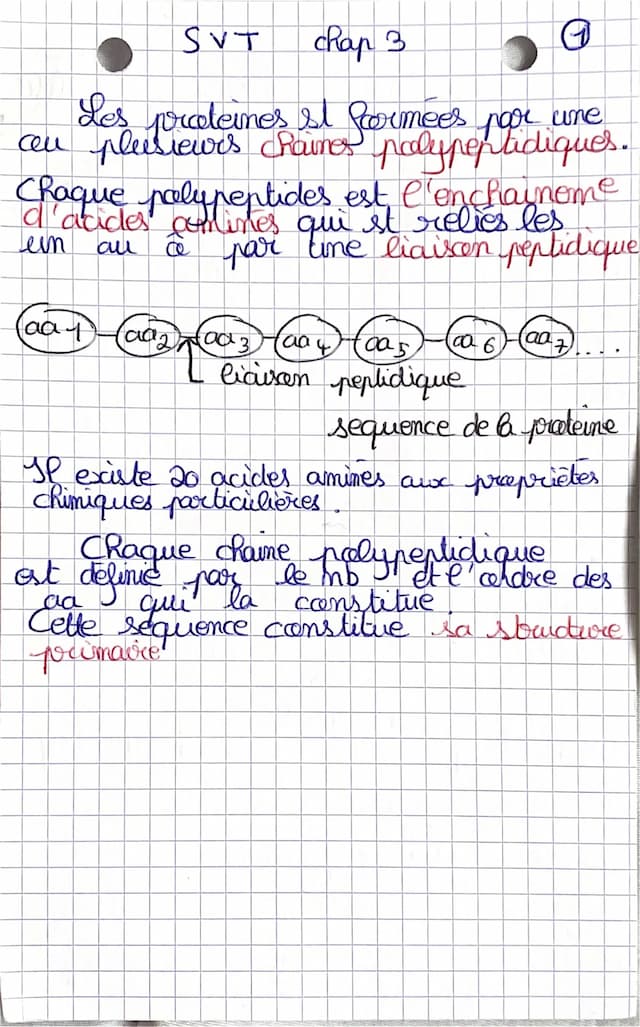 SVT chap 3 1
Les proteines st formées par une
ou plusieurs chaines polypeptidiques.
Chaque polypeptides est l'enchaineme
d'acides aminés qui st reliés les
un au à par une liaison peptidique
aa 1 aa2 aa3 aa4 aa5 aa 6 aa7....
liaison peptidique
sequence de la proteine
Il existe 20 acides aminés aux propriétés
chimiques particulières.
Chaque chaine polypeptidique
est définie par le nb et l'ordre des
aa qui la constitue.
Cette séquence constitue sa structure
primaire